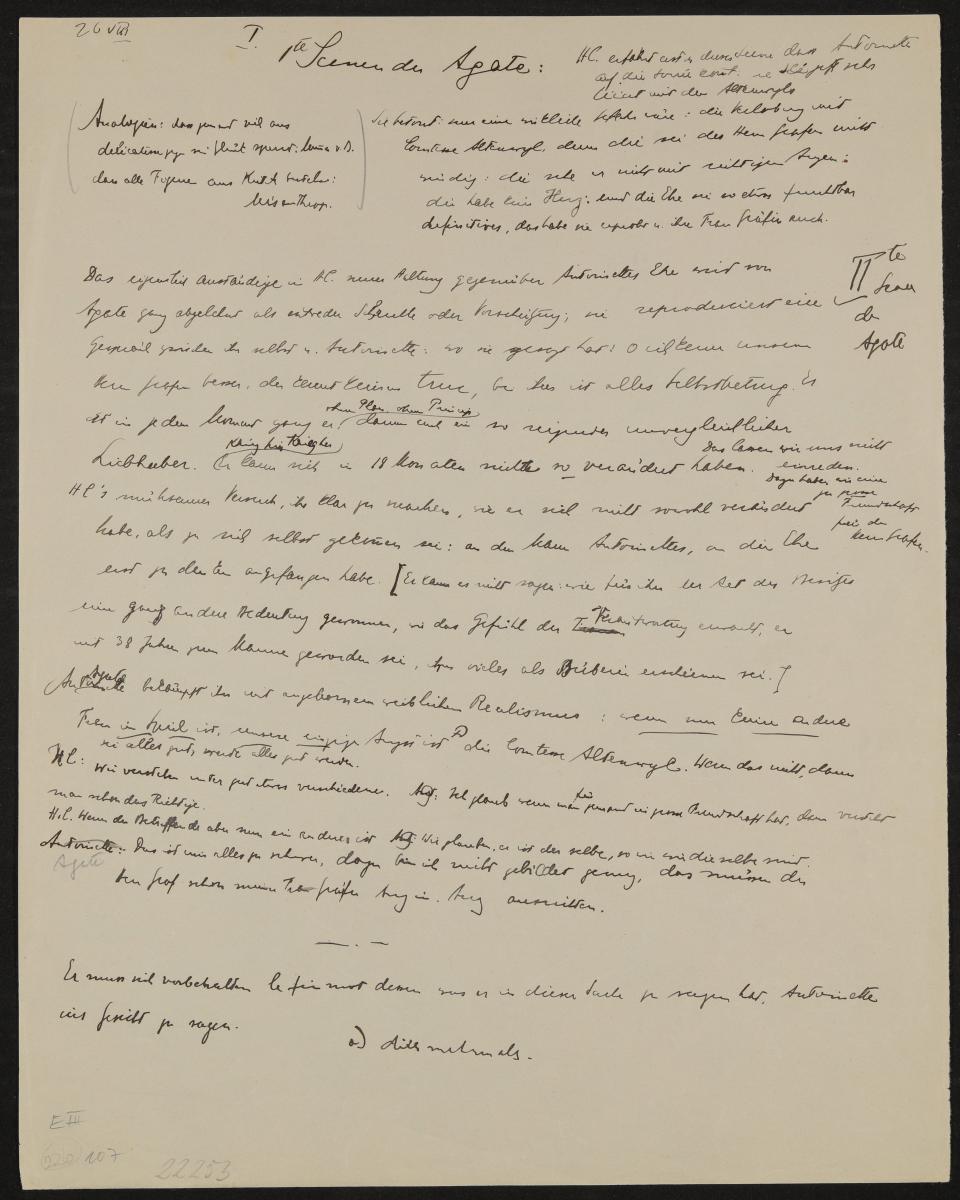 26 VIII
I.
1te Scene der Agate:
HC. erfährt erst in dieser Scene dass Antoinette
auf die Soirée kommt.
mit den Altenwyls
Analogieen: dass jemand viel aus
delicatesse
dass alle Figuren aus
Misanthrop.
Sie betont: nur eine wirkliche Gefahr wäre: die Heirat mit
Comtesse Altenwyl, denn die sei des Herrn Grafen nicht
würdig: die sehe er nicht mit richtigen Augen:
die habe kein Herz: und die Ehe sei so etwas furchtbar
definitives, das habe sie erprobt u. ihre Frau Gräfin auch.
IIte
Scene
der
Agate
Das eigentlich anständige in HC. neuer Haltung gegenüber Antoinettes Ehe wird von
Agate ganz abgelehnt als entweder Schrulle oder Vorspiegelung; sie reproduciert ein
Gespräch zwischen ihr selbst u. Antoinette: wo sie gesagt hat: O ich kenne unseren
Herrn Grafen besser, der kennt keinen true, bei dem ist alles Selbstbetrug. Es
ist in jedem Moment ganz er: ohne Plan, ohne Princip dann und ein so reizender unvergleichlicher
Liebhaber. Er kann sich in 18 Monaten nicht so verändert haben. Das lassen wir uns nicht
einreden.
Dazu haben wir eine
zu grosse
Freundschaft
für den
Herrn Grafen.
HC's mühsamer Versuch, ihr klar zu machen, wie er sich nicht sowohl verändert
habe, als zu sich selbst gekommen sei: an dem Mann Antoinettes, an die Ehe
erst zu denken angefangen habe. [Er kann es nicht sagen: wie für ihn der Act des Besitzes
eine ganz andere Bedeutung gewonnen, wie das Gefühl der Verantwortung erwacht, er
mit 38 Jahren zum Manne geworden sei, ihm vieles als Büberei erschienen sei.]
Agate bekämpft ihn mit angeborenem weiblichen Realismus: wenn nur keine andere
Frau im Spiel ist, unsere einzige Angst ist die Comtesse Altenwyl. Wenn das nicht, dann
sei alles gut, werde alles gut werden.
HC: Wir verstehen unter gut etwas verschiedenes. Ag: Ich glaub wenn man für jemand eine grosse Freundschaft hat, dann versteht
man schon das Richtige.
H.C. Wenn der Betreffende aber nun ein anderer ist Ag: Wir glauben, er ist der selbe, so wie wir die selbe sind.
Antoinette: Das ist mir alles zu schwer, dazu bin ich nicht gebildet genug, das müssen der
Agate
Herr Graf schon meiner Frau Gräfin Aug in Aug ausrichten.
Er muss sich vorbehalten le fin mot dessen was er in dieser Sache zu sagen hat, Antoinette
ins Gesicht zu sagen.
a) dies mehrmals.
E III
107
22253